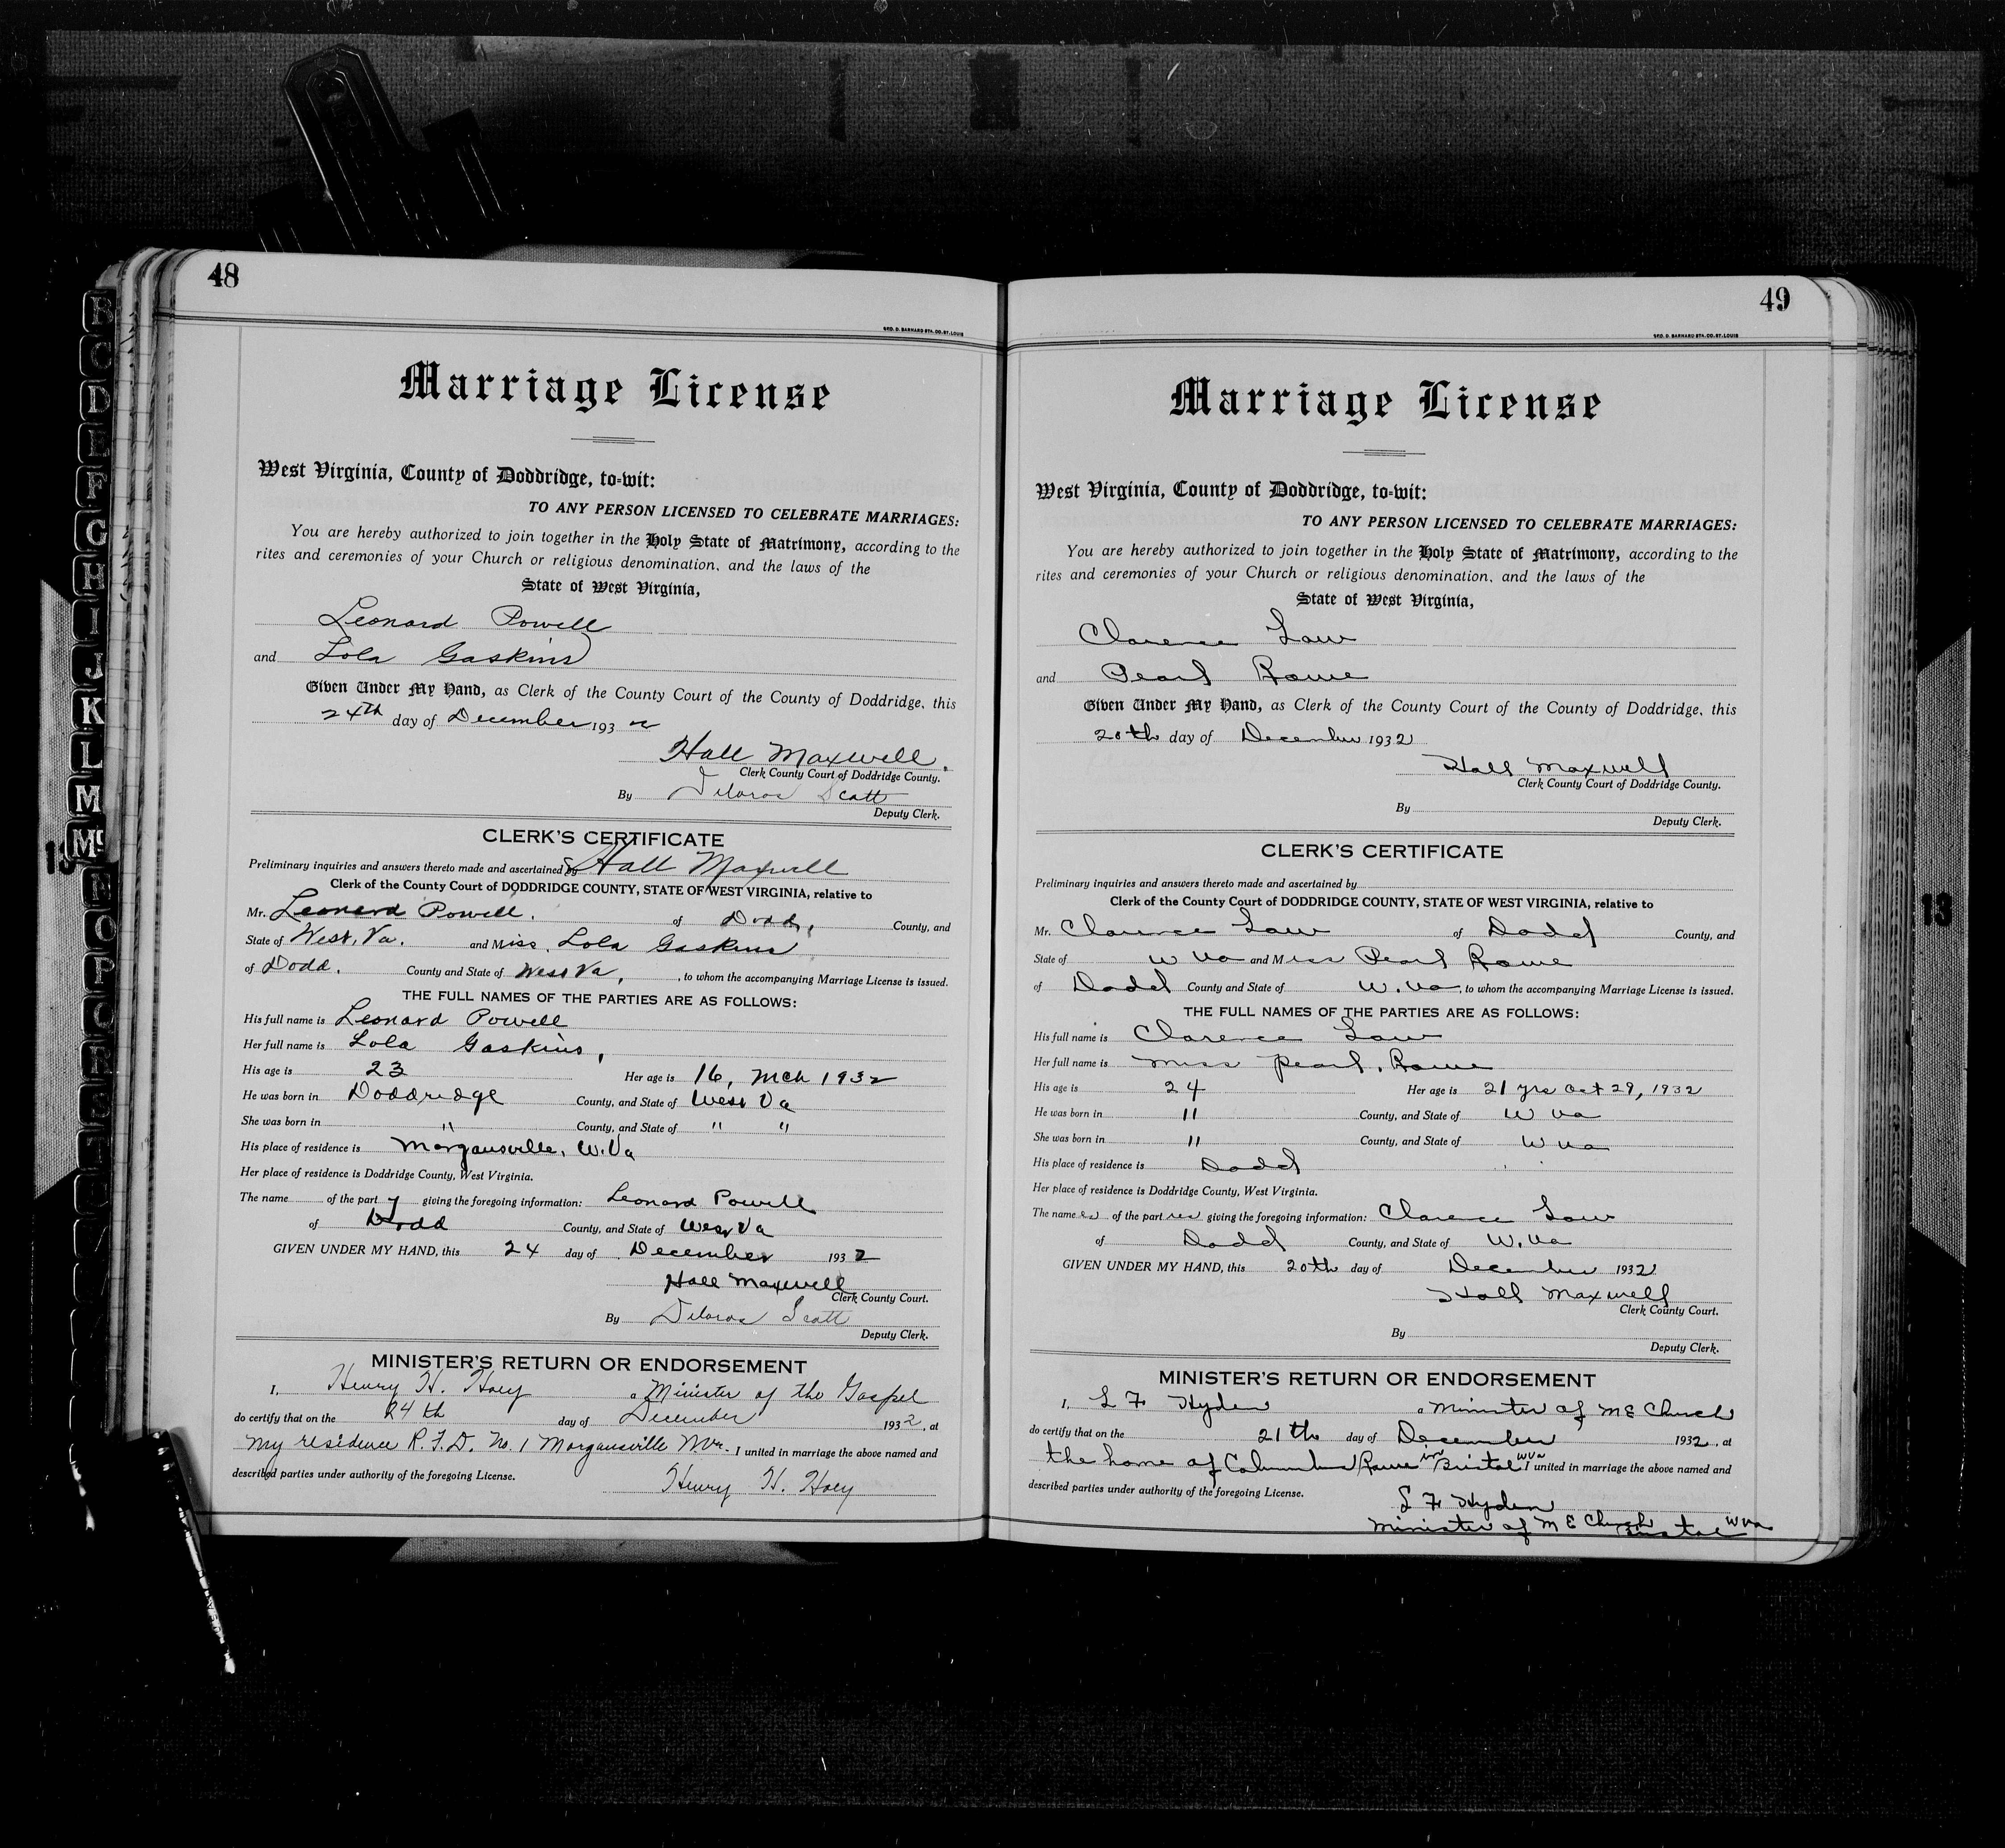 48
GEO. D. BARNARD STA. CO. ST. LOUIS
Marriage License
West Virginia, County of Doddridge, to-wit:
TO ANY PERSON LICENSED TO CELEBRATE MARRIAGES:
You are hereby authorized to join together in the Holy State of Matrimony, according to the
rites and ceremonies of your Church or religious denomination, and the laws of the
State of West Virginia,
Leonard Powell
and Lola Gaskins
Given Under My Hand, as Clerk of the County Court of the County of Doddridge, this
24th day of December 1932
Hall Maxwell.
Clerk County Court of Doddridge County.
By Scott
Deputy Clerk.
CLERK'S CERTIFICATE
Preliminary inquiries and answers thereto made and ascertained by Hall Maxwell
Clerk of the County Court of DODDRIDGE COUNTY, STATE OF WEST VIRGINIA, relative to
Mr. Leonard Powell. of Dodd, County, and
State of West. Va. and Miss. Lola Gaskins
of Dodd. County and State of West Va, , to whom the accompanying Marriage License is issued.
THE FULL NAMES OF THE PARTIES ARE AS FOLLOWS:
His full name is Leonard Powell
Her full name is Lola Gaskins,
His age is 23 Her age is 16, Mch 1932
He was born in Doddridge County, and State of West Va
She was born in " County, and State of " "
His place of residence is Morgansville, W.Va
Her place of residence is Doddridge County, West Virginia.
The name of the party giving the foregoing information: Leonard Powell
of Dodd County, and State of West Va
GIVEN UNDER MY HAND, this 24 day of December 1932
Hall Maxwell
Clerk County Court.
By Scott
Deputy Clerk.
MINISTER'S RETURN OR ENDORSEMENT
I, Henry H. Hoey a Minister of the Gospel
do certify that on the 24th day of December 1932, at
My residence R.F.D. No. 1 Morgansville W.Va. I united in marriage the above named and
described parties under authority of the foregoing License.
Henry H. Hoey
49
GEO. D. BARNARD STA. CO. ST. LOUIS
Marriage License
West Virginia, County of Doddridge, to-wit:
TO ANY PERSON LICENSED TO CELEBRATE MARRIAGES:
You are hereby authorized to join together in the Holy State of Matrimony, according to the
rites and ceremonies of your Church or religious denomination, and the laws of the
State of West Virginia,
Clarence Law
and Pearl Rowe
Given Under My Hand, as Clerk of the County Court of the County of Doddridge, this
20th day of December 1932
Hall Maxwell
Clerk County Court of Doddridge County.
By
Deputy Clerk.
CLERK'S CERTIFICATE
Preliminary inquiries and answers thereto made and ascertained by
Clerk of the County Court of DODDRIDGE COUNTY, STATE OF WEST VIRGINIA, relative to
Mr. Clarence Law of Dodd County, and
State of W Va and Miss Pearl Rowe
of Dodd County and State of W. Va , to whom the accompanying Marriage License is issued.
THE FULL NAMES OF THE PARTIES ARE AS FOLLOWS:
His full name is Clarence Law
Her full name is Miss Pearl. Rowe
His age is 24 Her age is 21 yrs Oct 29, 1932
He was born in " County, and State of W Va
She was born in " County, and State of W Va
His place of residence is Dodd
Her place of residence is Doddridge County, West Virginia.
The namees of the parties giving the foregoing information: Clarence Law
of Dodd County, and State of W. Va
GIVEN UNDER MY HAND, this 20th day of December 1932
Hall Maxwell
Clerk County Court.
By
Deputy Clerk.
MINISTER'S RETURN OR ENDORSEMENT
I, L F Hyden a Minister of M E Church
do certify that on the 21th day of December 1932, at
the home of Columbus Rowe in Bristol WVa I united in marriage the above named and
described parties under authority of the foregoing License.
L F Hyden
Minister of M E Church Bristol W Va
B
C
D
E
F
G
H
I
J
K
L
M
Mc
O
P
13
13